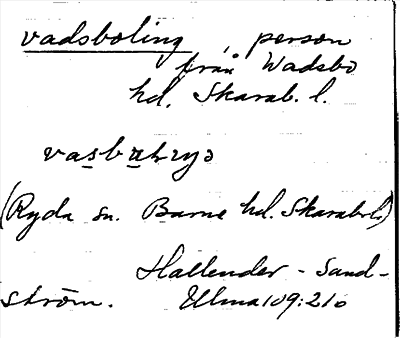 vadsboling, person
från Wadsbo
hd. Skarab. l.
(Ryda sn. Barne hd. Skarab. l.)
Hallender - Sand-
ström. Ulma 109:210